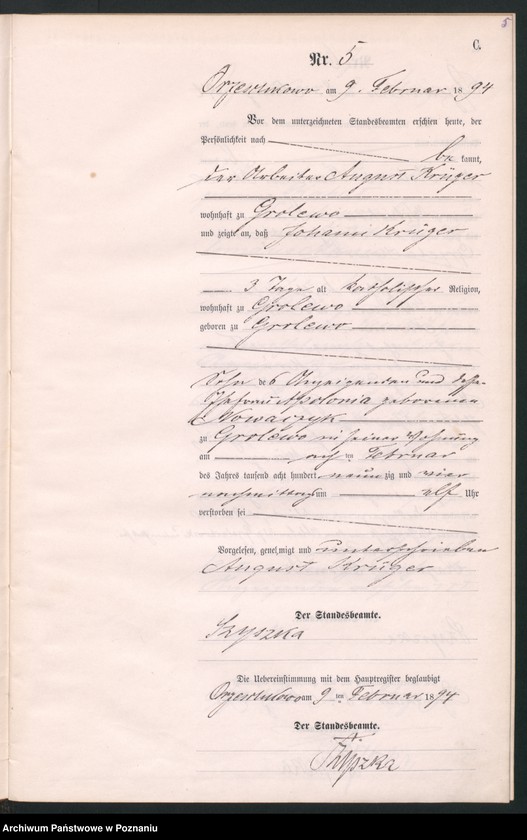 5
C.
Nr. 5
Orzeschkowo am 9. Februar 1894
Vor dem unterzeichneten Standesbeamten erschien heute, der
Persönlichkeit nach
bekannt,
der Arbeiter August Krüger
wohnhaft zu Grolewo
und zeigte an, daß Johann Krüger
3 Tage alt katholischer Religion,
wohnhaft zu Grolewo
geboren zu Grolewo
Sohn des Anzeigenden und dessen
Ehefrau Apolonia geborenen
Nowaczyk
zu Grolewo in seiner Wohnung
am acht ten Februar
des Jahres tausend acht hundert neunzig und vier
nachmittags um elf Uhr
verstorben sei
Vorgelesen, genehmigt und unterschrieben
August Krüger
Der Standesbeamte.
Szyszka
Die Uebereinstimmung mit dem Hauptregister beglaubigt
Orzeschkowo am 9 ten Februar 1894
Der Standesbeamte.
Szyszka
Archiwum Państwowe w Poznaniu